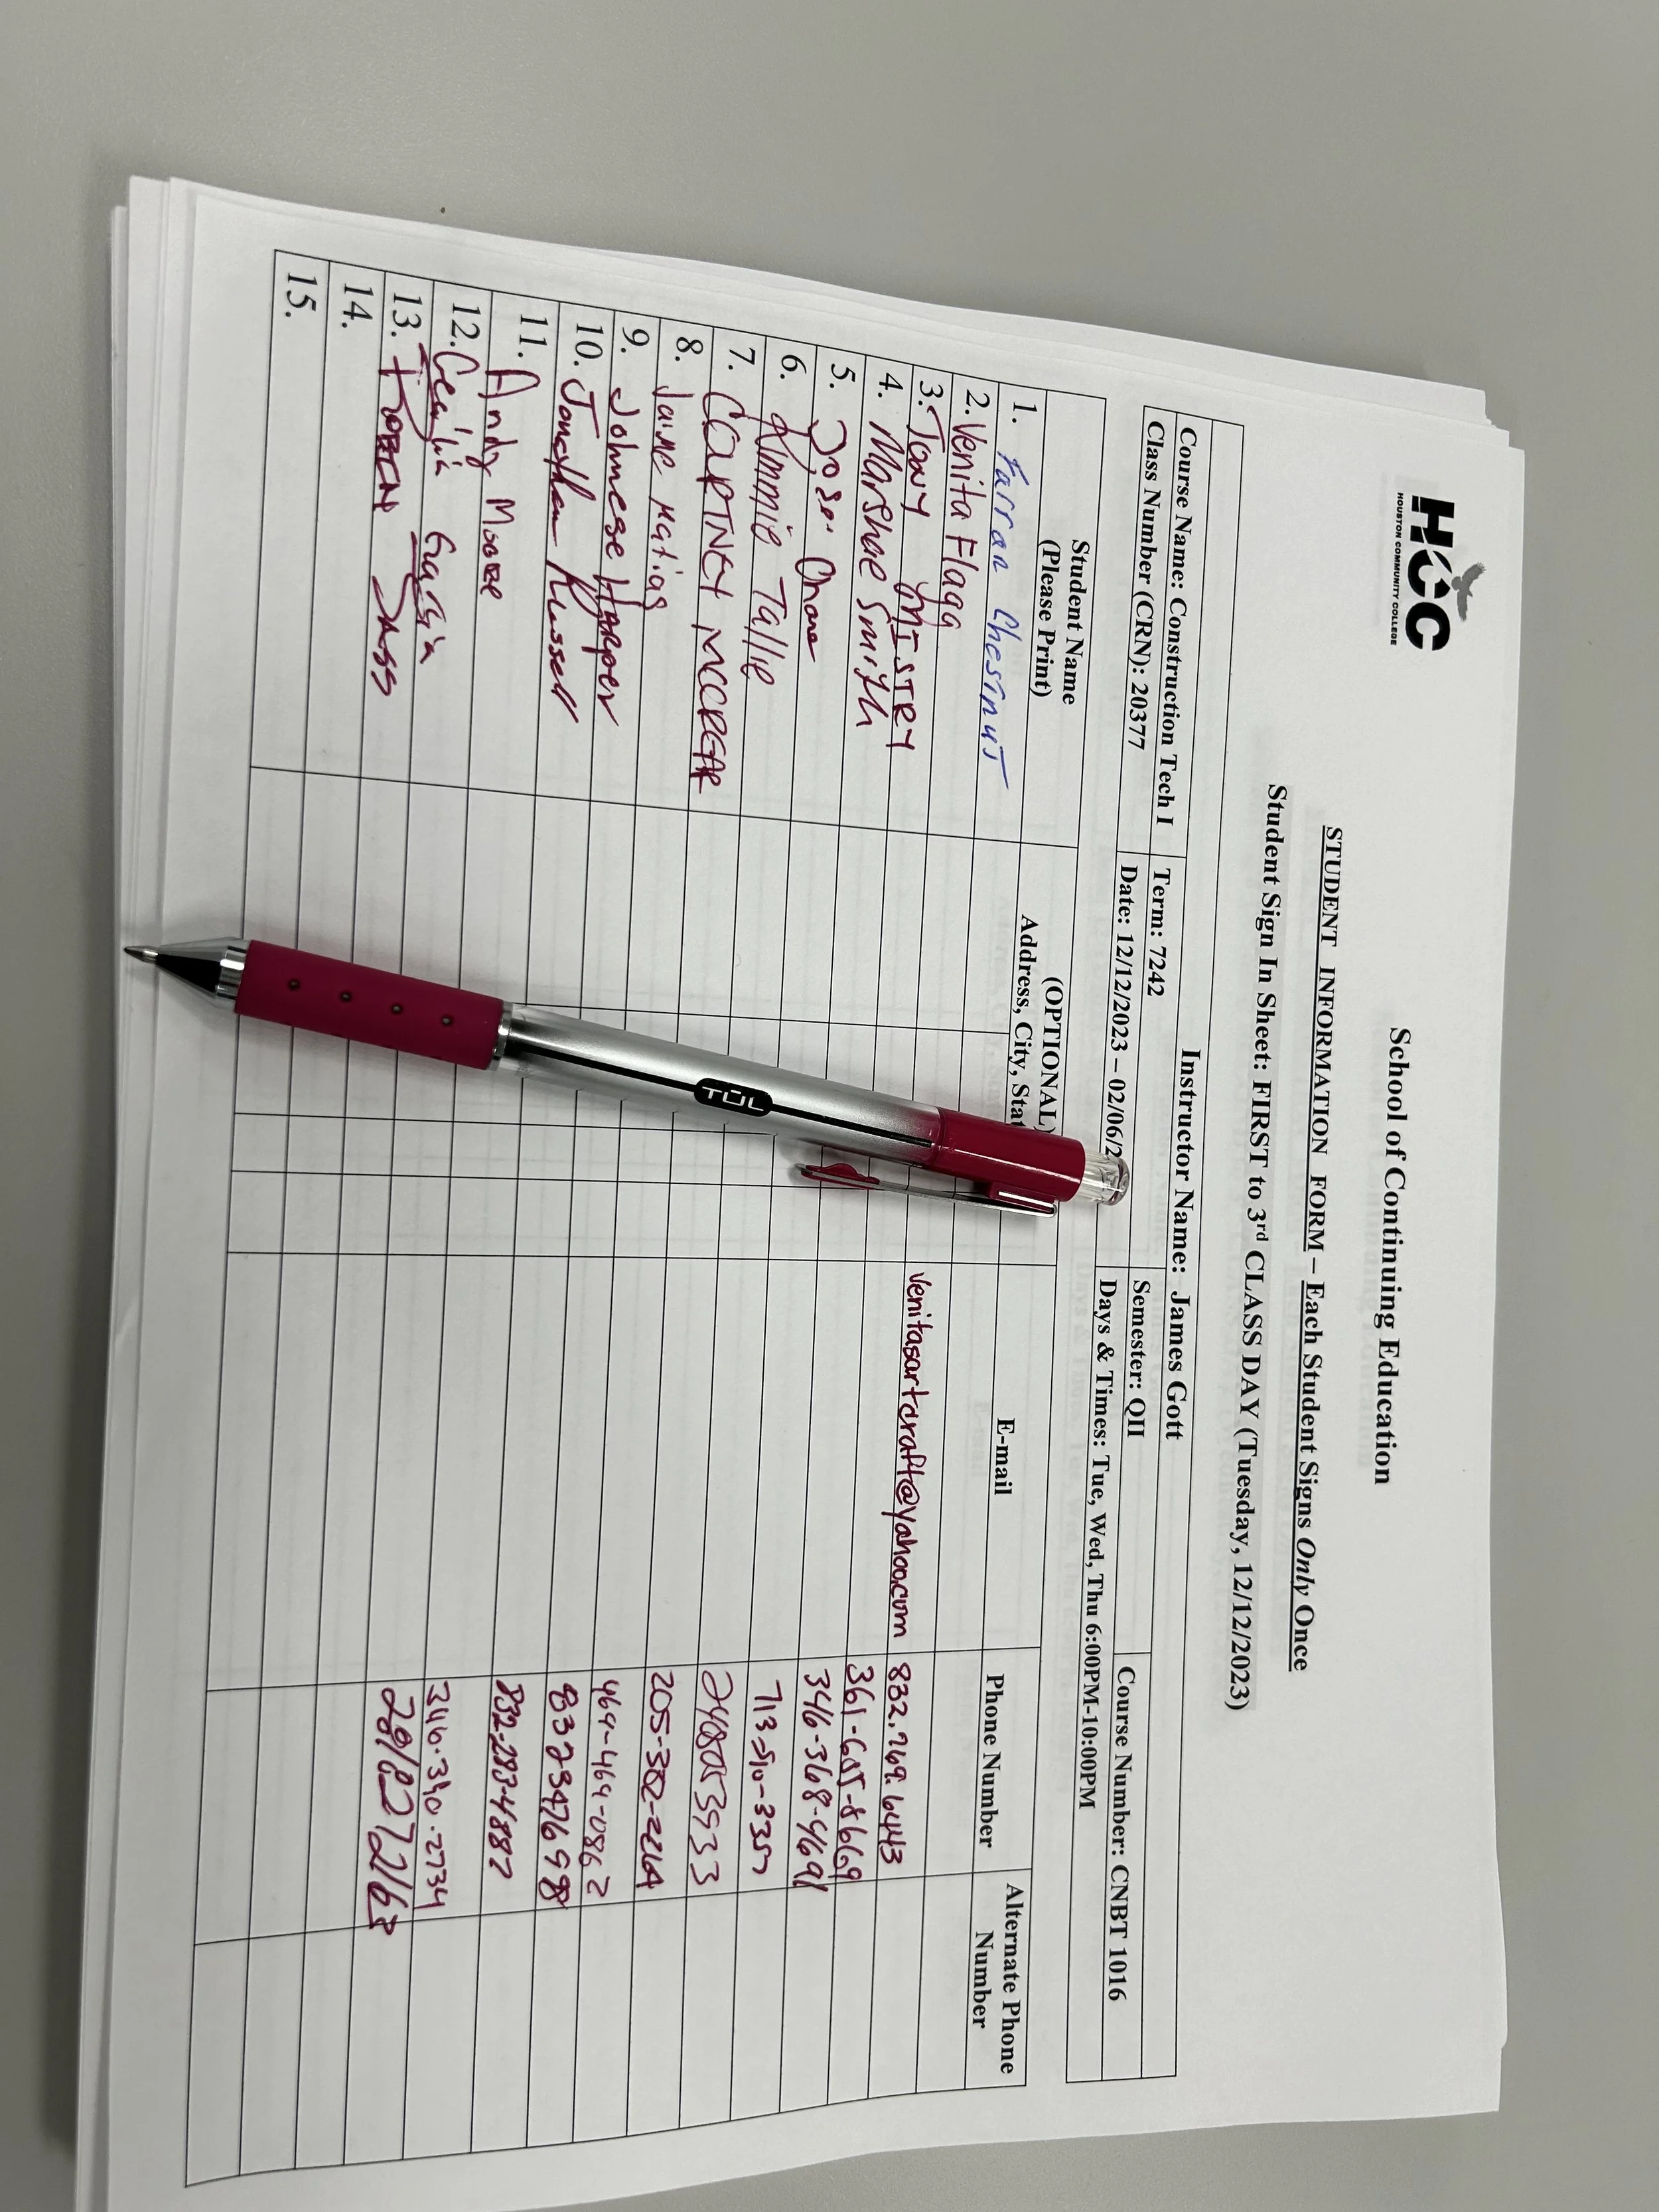 HCC
HOUSTON COMMUNITY COLLEGE
School of Continuing Education
STUDENT INFORMATION FORM – Each Student Signs Only Once
Student Sign In Sheet: FIRST to 3rd CLASS DAY (Tuesday, 12/12/2023)
Instructor Name: James Gott
Course Name: Construction Tech I Term: 7242 Semester: QII Course Number: CNBT 1016
Class Number (CRN): 20377 Date: 12/12/2023 – 02/06/2 Days & Times: Tue, Wed, Thu 6:00PM-10:00PM
Student Name (OPTIONAL) E-mail Phone Number Alternate Phone
(Please Print) Address, City, Stat Number
1. Farran Chestnut
2. Venita Flagg venitasartcraft@yahoo.com 832.769.6443
3. Tony MISTRY 361-605-8669
4. Marshae Smith 346-368-4691
5. Jose
6. Kimmie Tallie 2480853933
7. COURTNEY MCCREAR 205-382-2264
8. Jaime Matias 469-464-0862
9. Johnese Harper 8323476998
10. Jonathan Russell 832-283-4882
11. Andy Moore
12. Cecilia Garcia 346.340.2734
13. 2818272163
14.
15.
TUL